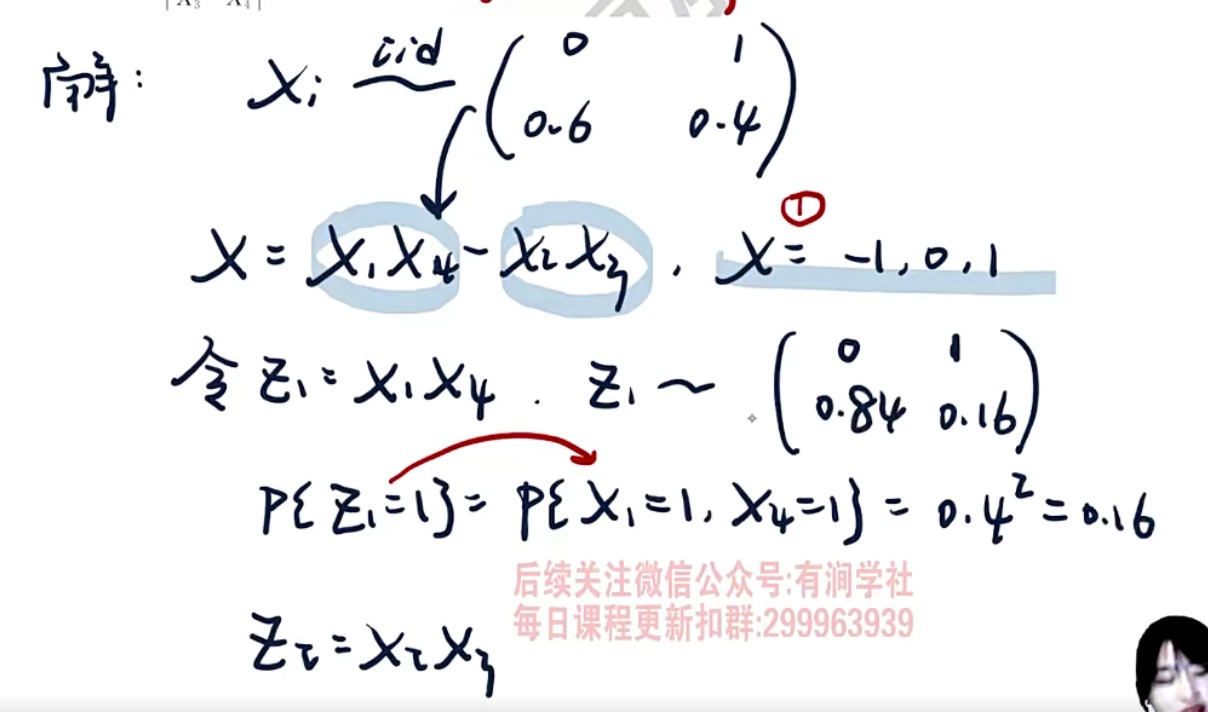 X₃ X₄
解: Xᵢ iid ~ ( 0 1
0.6 0.4 )
①
X = X₁X₄ - X₂X₃ . X = -1, 0, 1
令 Z₁ = X₁X₄ . Z₁ ~ ( 0 1
0.84 0.16 )
P{Z₁=1} = P{X₁=1, X₄=1} = 0.4² = 0.16
后续关注微信公众号:有涧学社
每日课程更新扣群:299963939
Z₂ = X₂X₃